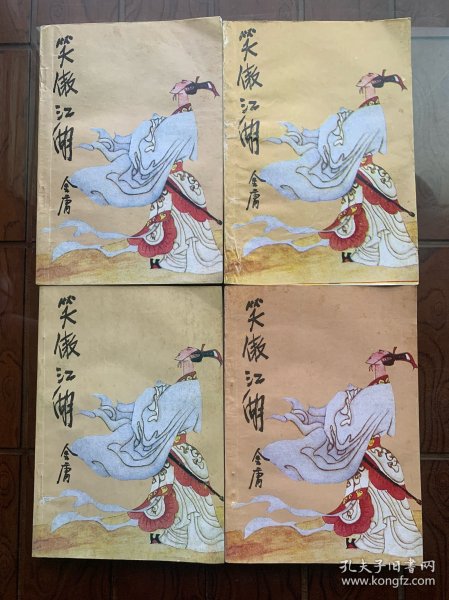 笑傲江湖
金庸
笑傲江湖
金庸
笑傲江湖
金庸
笑傲江湖
金庸
孔夫子旧书网
www.kongfz.com